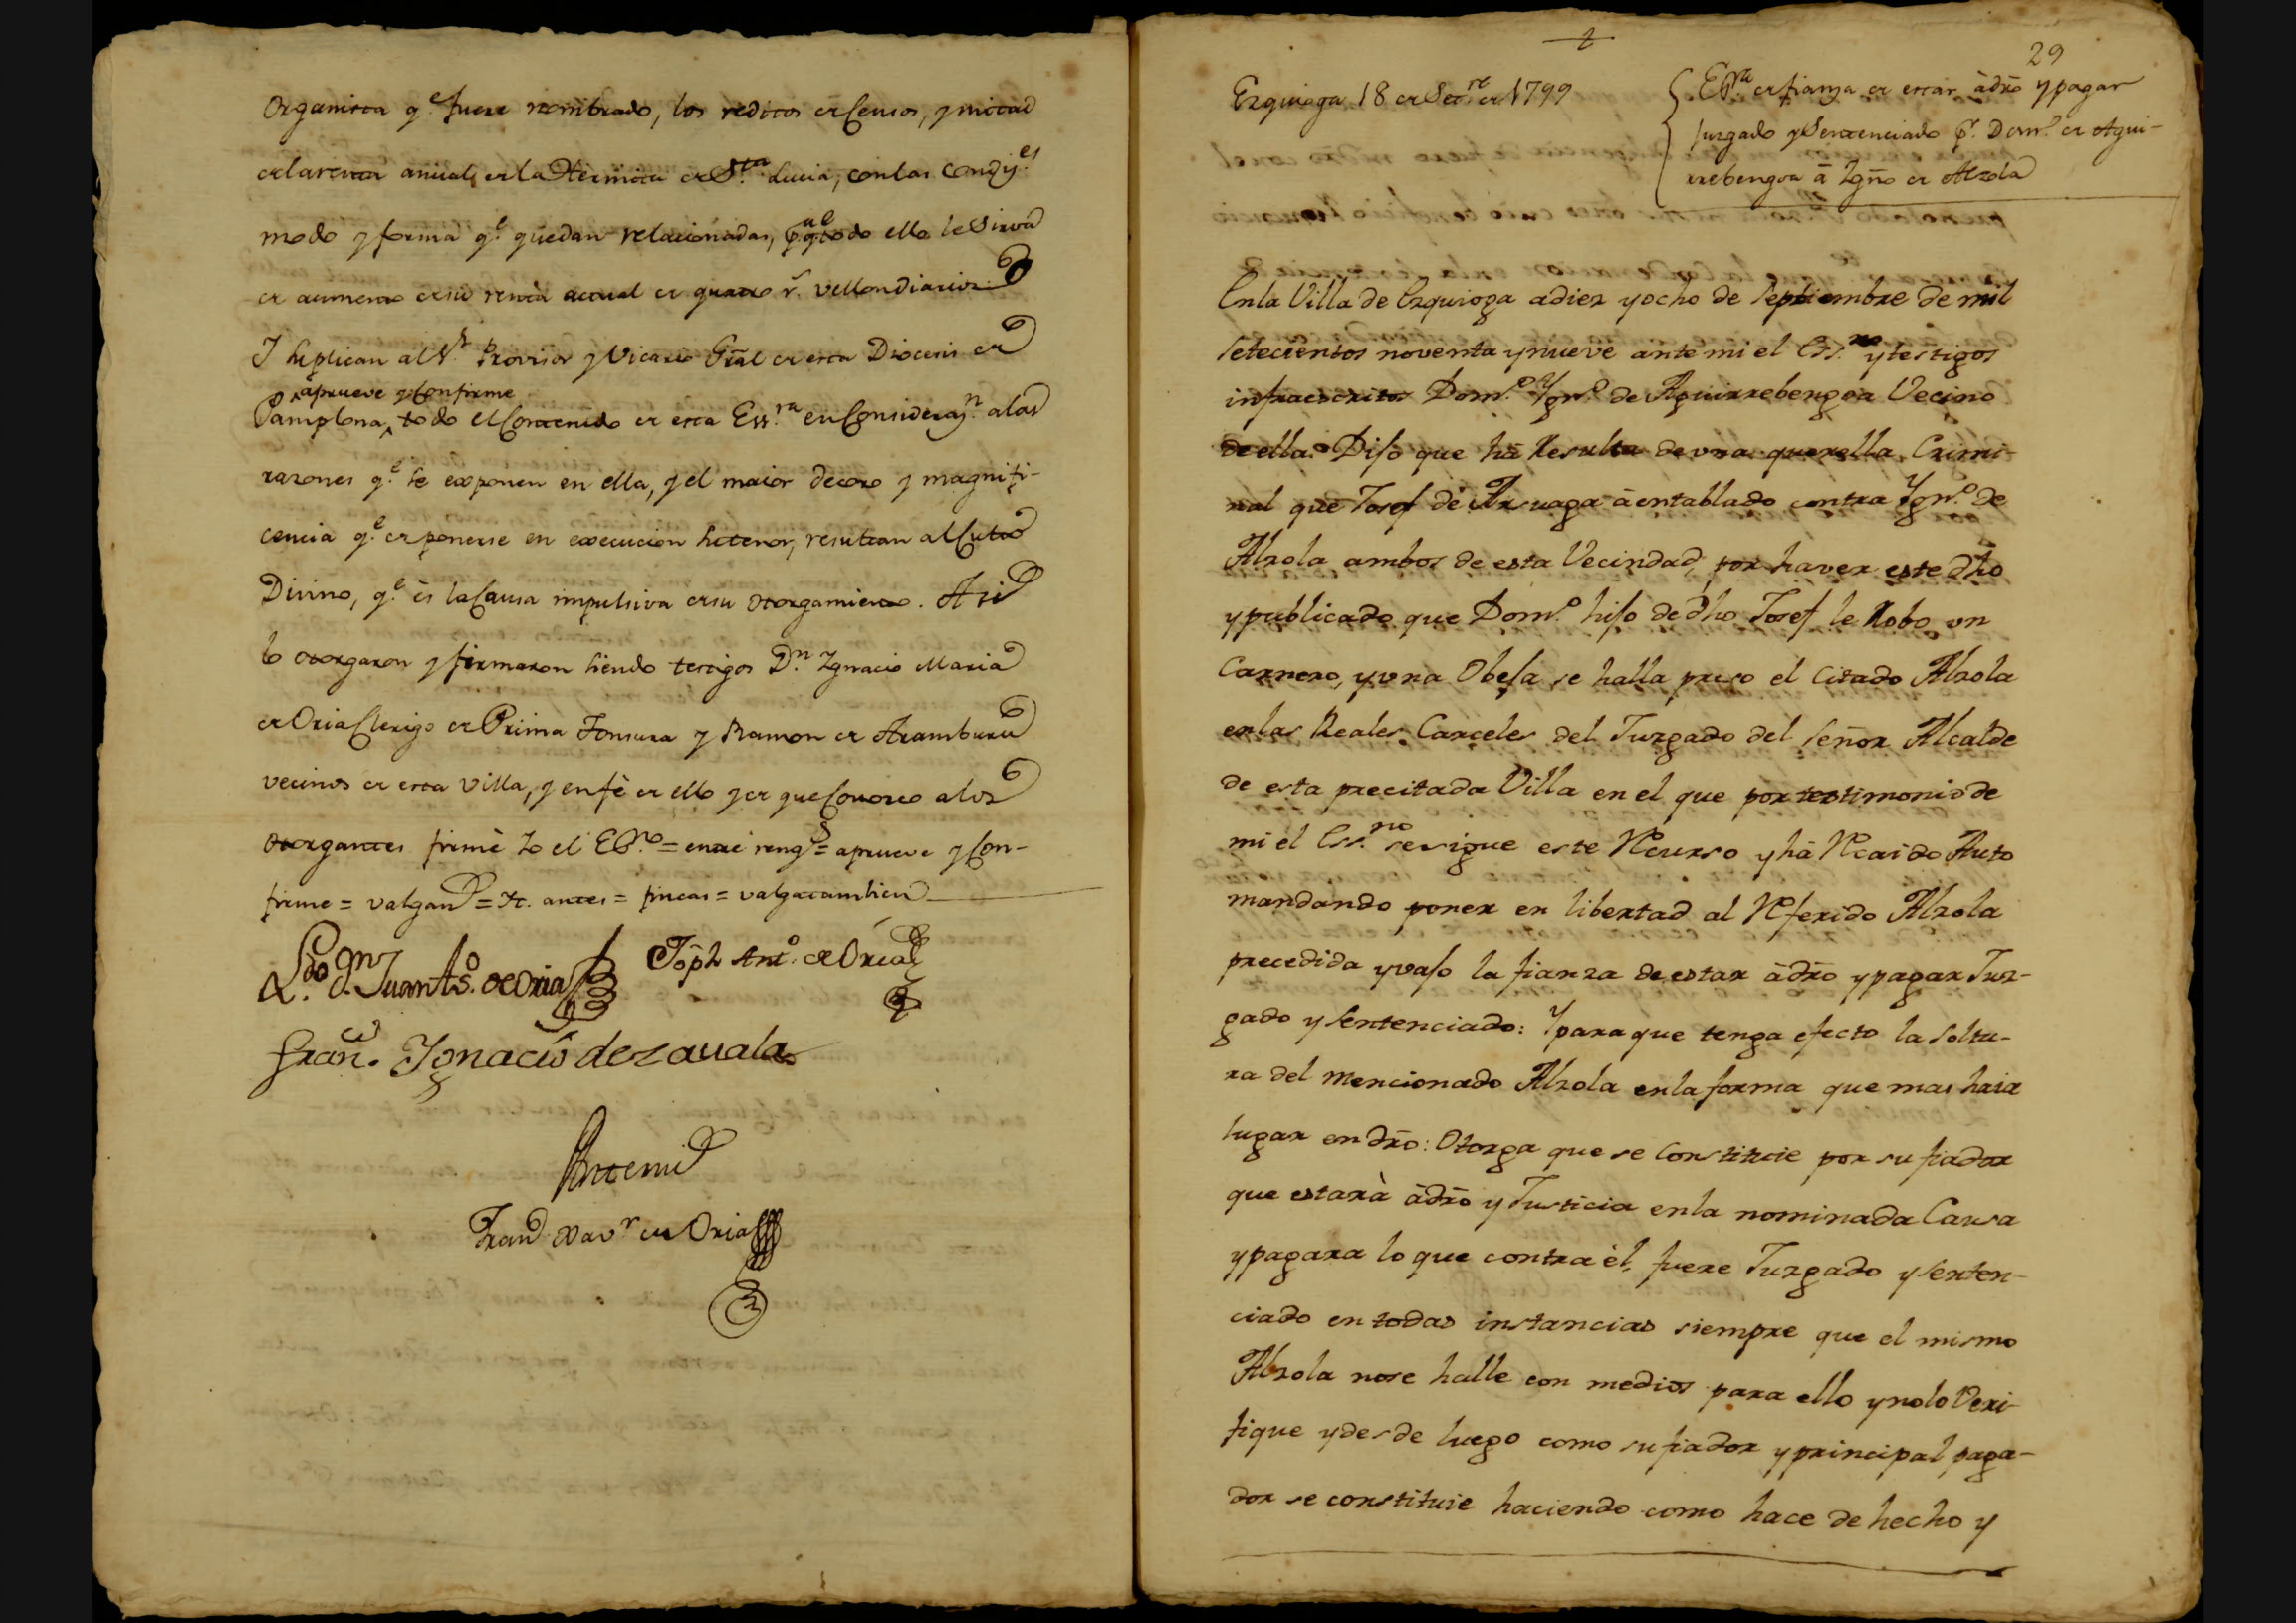 Organista q.e fuere nombrado, los reditos de Censos, y mitad
de la renta anual de la Hermita de S.ta Lucia, con las condiz.es
modo y forma q.e quedan relacionadas, p.a q.e todo ello le sirva
de aumento de su renta actual de quatro r.s vellon diarios.
I suplican al S.r Provisor y Vicario Gral de esta Diocesis de
aprueve y Confirme
Pamplona, todo el Contenido de esta Ess.ra en Consideraz.n a las
razones q.e se exponen en ella, y el maior decoro y magnifi-
cencia q.e de ponerse en execucion su tenor, resultan al Culto
Divino, q.e ès la Causa impulsiva de su otorgamiento. Asi
lo otorgaron y firmaron siendo testigos D.n Ignacio Maria
de Oria Clerigo de Prima Tonsura y Ramon de Aramburu
vecinos de esta Villa, y en fè de ello y de que Conozco a los
otorgantes firmè Io el Ess.no = entre reng.s = aprueve y Con-
firme = valgan = It. antes = fincas = valga tambien
L.do D.n Juan As.o de Oria Joph Ant.o de Oria
Fran.co Ignacio de Zavala
Antemi
Fran.co Xav.r de Oria
29
Ezquioga 18 de Set.re de 1799
Ess.ra de fianza de estar àdro y pagar
Juzgado y Sentenciado p.r Dom.o de Agui-
rrebengoa à Igño de Alzola
En la Villa de Ezquioga a diez y ocho de Septiembre de mil
setecientos noventa y nueve ante mi el Ess.no y testigos
infraescritos Dom.o Ygn.o de Aguirrebengoa Vecino
de ella. Dijo que hà Resulta de vna querella Crimi-
nal que Josef de Arsuaga à entablado contra Ygn.o de
Alzola ambos de esta Vecindad, por haver este dho
y publicado que Dom.o hijo de dho Josef le Robo vn
Carnero, y vna Obeja se halla preso el Citado Alzola
en las Reales Carceles del Juzgado del Señor Alcalde
de esta precitada Villa en el que por testimonio de
mi el Ess.no se sigue este Recurso y hà Recaido Auto
mandando poner en libertad al Referido Alzola
precedida y vajo la fianza de estar àdro y pagar Juz-
gado y Sentenciado: Y para que tenga efecto la soltu-
ra del mencionado Alzola en la forma que mas haia
lugar en dro: Otorga que se Constituie por su fiador
que estarà àdro y Justicia en la nominada Causa
y pagara lo que contra èl, fuere Juzgado y senten-
ciado en todas instancias siempre que el mismo
Alzola no se halle con medios para ello y no lo Veri-
fique y desde luego como su fiador y principal paga-
dor se constituie haciendo como hace de hecho y